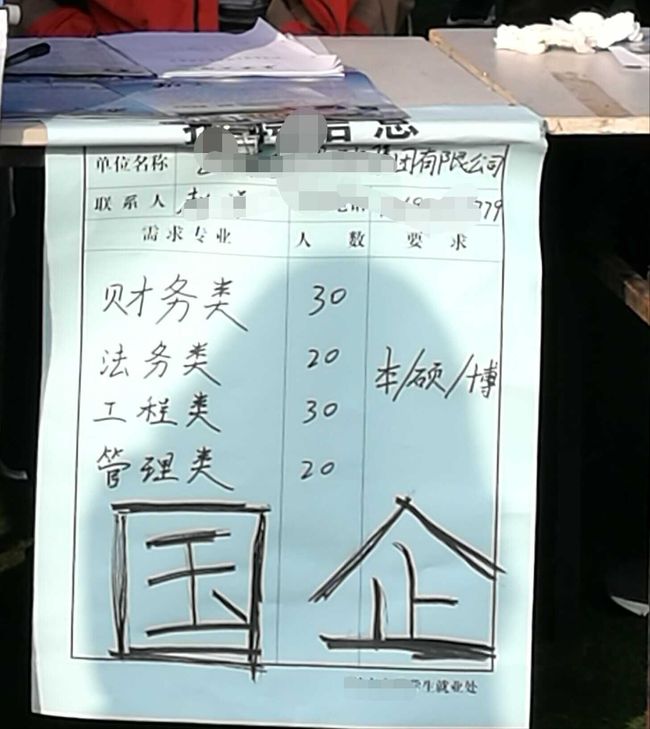 招聘信息
单位名称 团有限公司
联系人 电话 79
需求专业 人数 要求
财务类 30
法务类 20 本/硕/博
工程类 30
管理类 20
国企
学生就业处